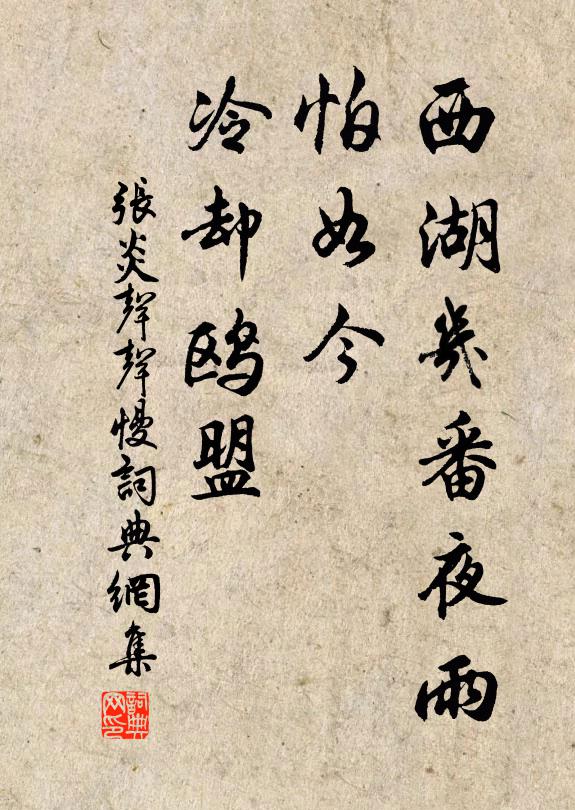 西湖幾番夜雨
怕如今
冷却鸥盟
張炎聲聲慢詞典網集
詞典网印